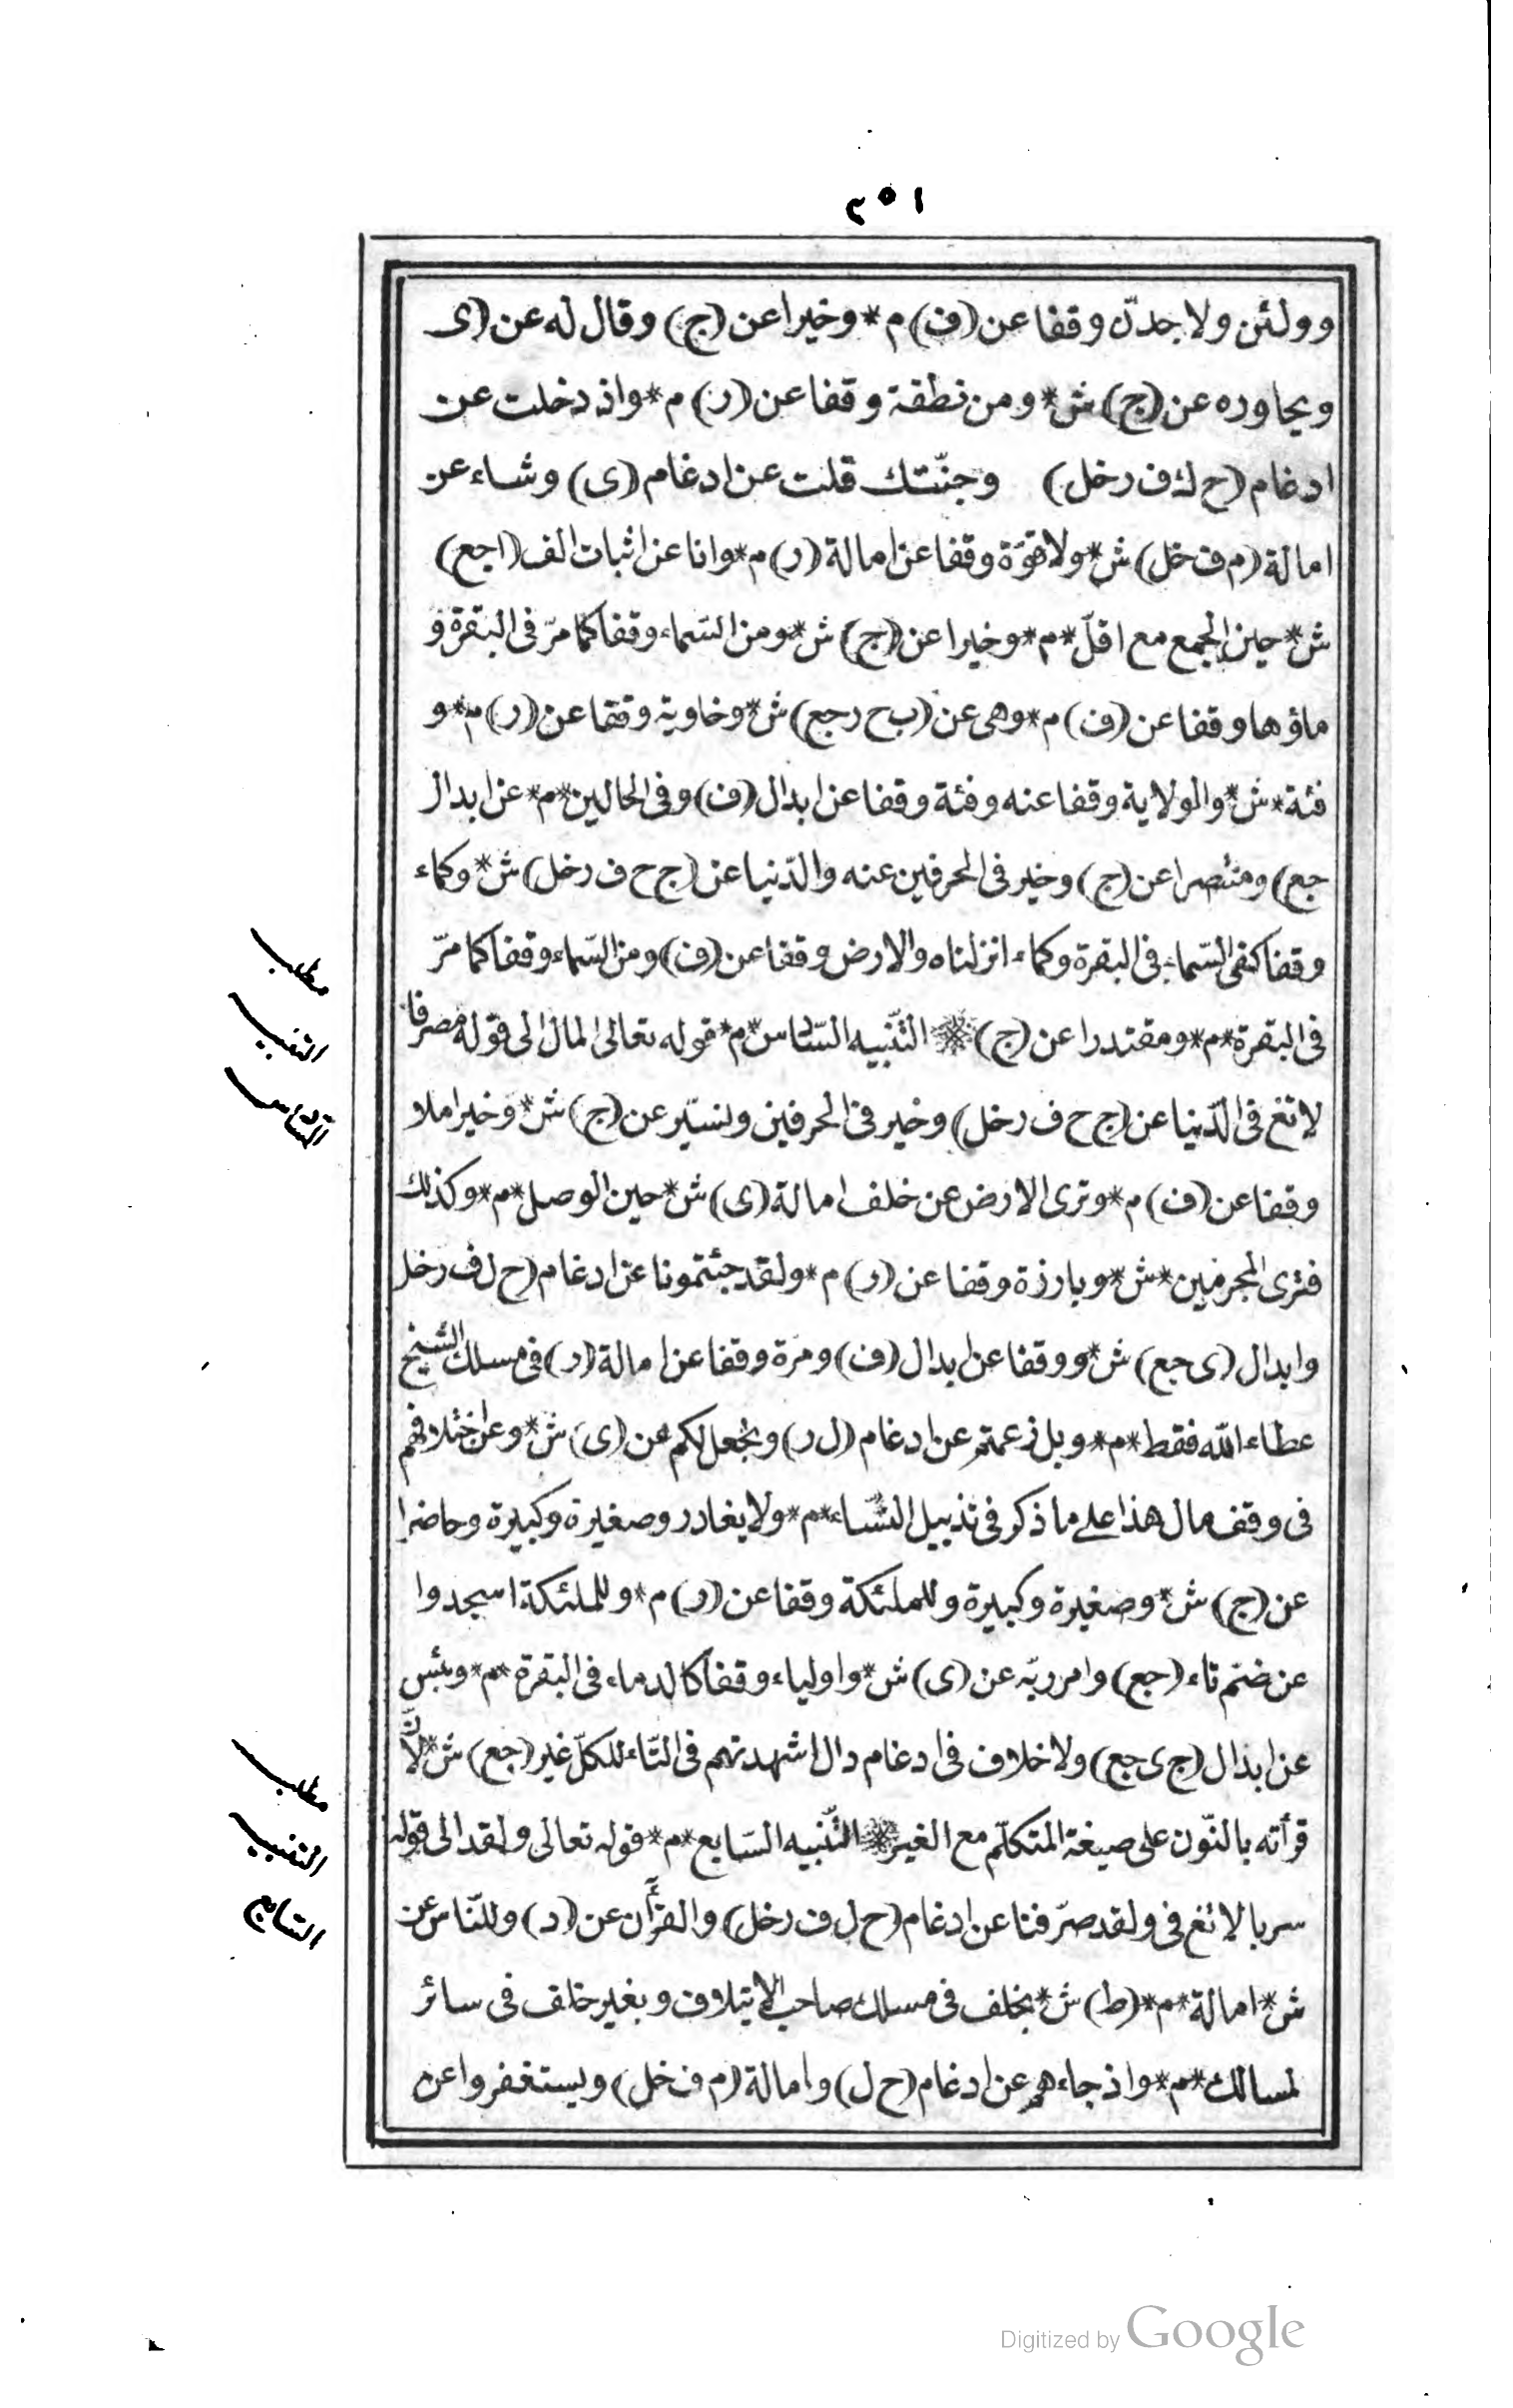 ٢٥١
وولئن ولاجدنّ وقفا عن (ف) م * وخيرا عن (ج) وقال له عن (ى
ويحاوره عن (ج) ش * ومن نطفة وقفا عن (ر) م * واذ دخلت عن
ادغام (ح ل ف ر خل) وجنّتك قلت عن ادغام (ى) وشاء عن
امالة (م ف خل) ش * ولا قوّة وقفا عن امالة (ر) م * وانا عن اثبات الف (اجع)
ش * حين الجمع مع اقلّ * م * وخيرا عن (ج) ش * ومن السّماء وقفا كما مرّ فى البقرة و
ماؤها وقفا عن (ف) م * وهى عن (ب ح ر جع) ش * وخاوية وقفا عن (ر) م * و
فئة * ش * والولاية وقفا عنه وفئة وقفا عن ابدال (ف) وفى الحالين * م * عن ابدال
جع) ومنتصرا عن (ج) وخير فى الحرفين عنه والدّنيا عن (ج ح ف ر خل) ش * وكماء
وقفا كفى السّماء فى البقرة وكماء انزلناه والارض وقفا عن (ف) ومن السّماء وقفا كما مرّ
فى البقرة * م * ومقتدرا عن (ج) * التّنبيه السّادس * م * قوله تعالى المال الى قوله مصرفا
لاتغ فى الدّنيا عن (ج ح ف ر خل) وخير فى الحرفين ونسيّر عن (ج) ش * وخير املا
وقفا عن (ف) م * وترى الارض عن خلف امالة (ى) ش * حين الوصل * م * وكذلك
فترى المجرمين * ش * وبارزة وقفا عن (ر) م * ولقد جئتمونا عن ادغام (ح ل ف ر خل
وابدال (ى جع) ش * ووقفا عن ابدال (ف) ومرة وقفا عن امالة (ر) فى مسلك الشيخ
عطاء الله فقط * م * وبل زعمتم عن ادغام (ل ر) ونجعل لكم عن (ى) ش * وعن اختلافهم
فى وقف مال هذا على ما ذكر فى تذييل النّساء * م * ولا يغادر وصغيرة وكبيرة وحاضرا
عن (ج) ش * وصغيرة وكبيرة وللملئكة وقفا عن (ر) م * وللملئكة اسجدوا
عن ضمّ تاء (جع) وامر ربّه عن (ى) ش * واولياء وقفا كالدماء فى البقرة * م * وبئس
عن ابدال (ج ى جع) ولا خلاف فى ادغام دال اشهدتهم فى التّاء للكلّ غير (جع) ش * لأنّ
قرأته بالنّون على صيغة المتكلّم مع الغير * التّنبيه السّابع * م * قوله تعالى ولقد الى قوله
سربا لاتغ فى ولقد صرّفنا عن ادغام (ح ل ف ر خل) والقرآن عن (د) وللنّاس عن
ش * امالة * م * (ط) ش * بخلف فى مسلك صاحب الايتلاف وبغير خلف فى سائر
لمسالك * م * واذ جاءهم عن ادغام (ح ل) وامالة (م ف خل) ويستغفروا عن
مطلب
التنبيه
السّادس
مطلب
التنبيه
السّابع
Digitized by Google